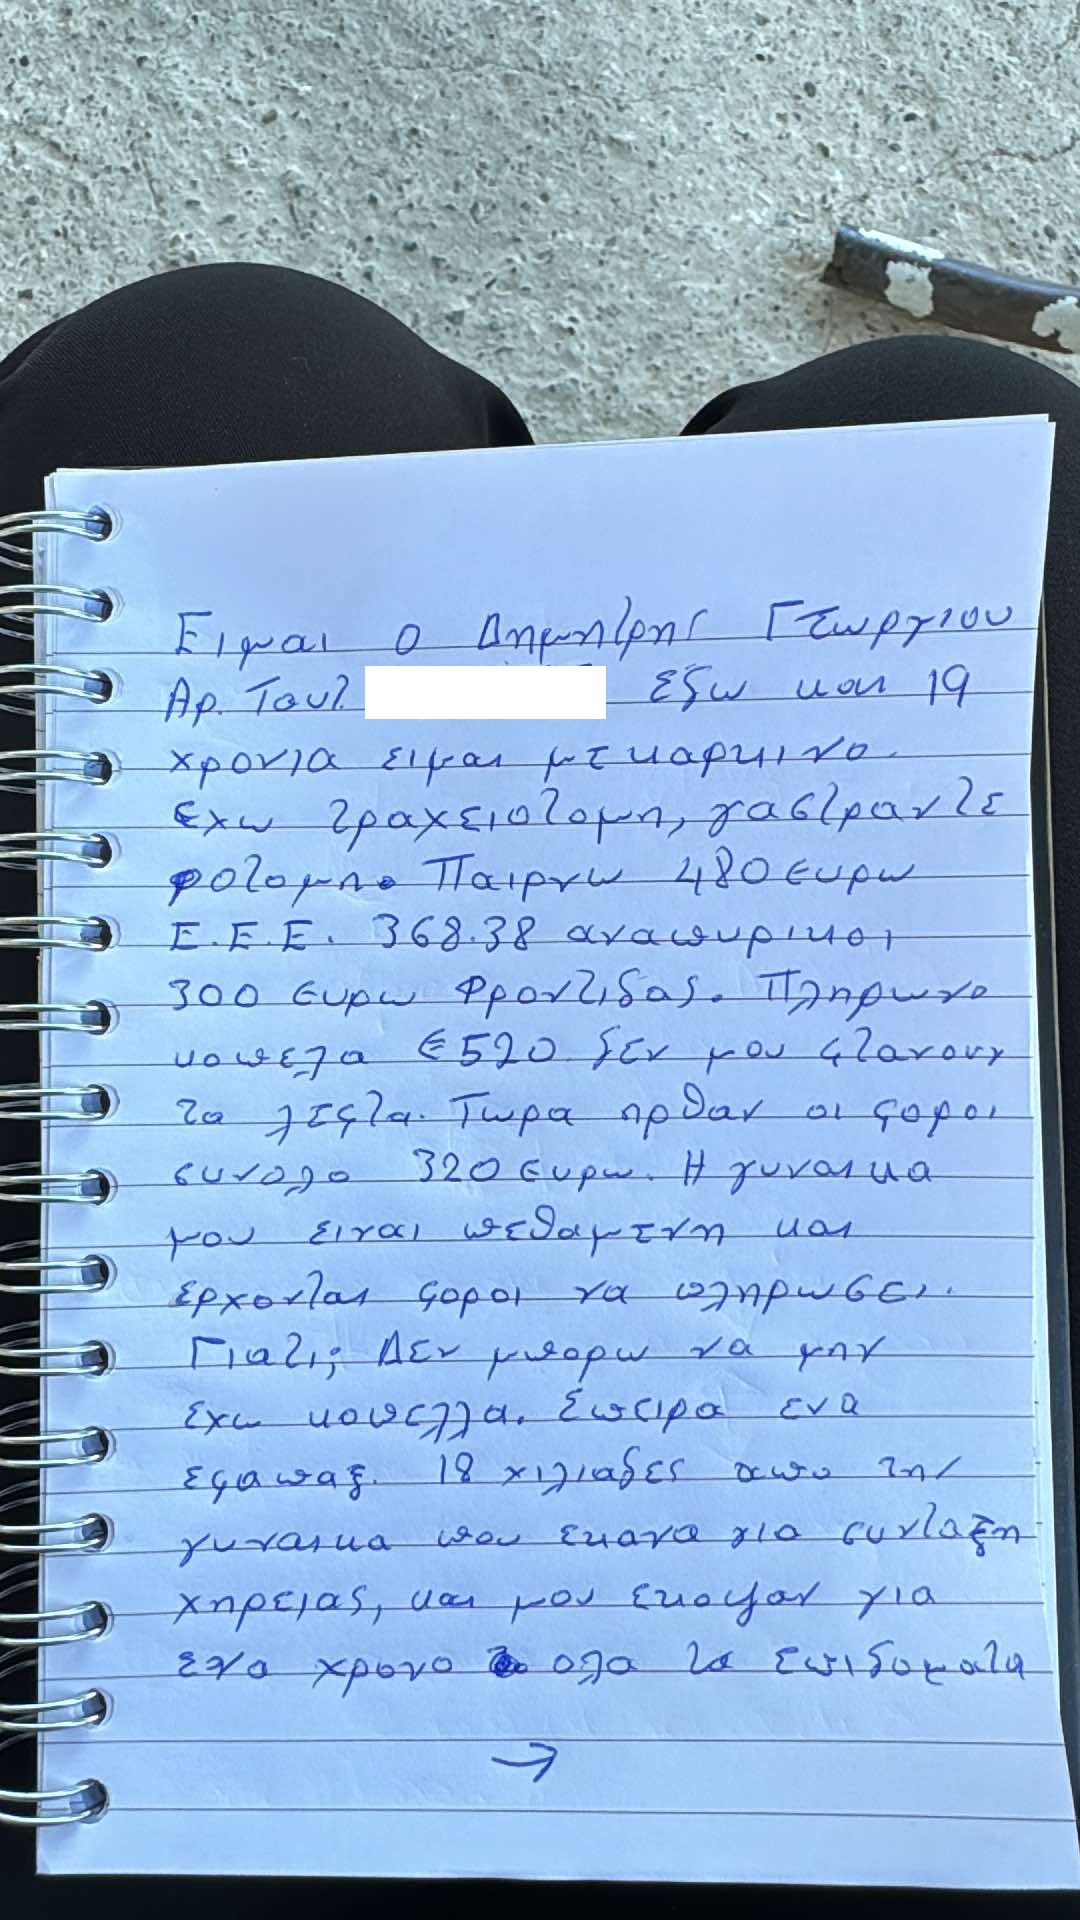 Ειμαι ο Δημητρης Γεωργιου
Αρ. Ταυτ. εδω και 19
χρονια ειμαι με καρκινο.
εχω τραχειοτομη, γαστραντε
ροτομη. Παιρνω 480 ευρω
Ε.Ε.Ε. 368.38 αναπυρικοι
300 ευρω Φροντιδας. Πληρωνο
κοπελα €520 δεν μου φτανουν
τα λεφτα. Τωρα ηρθαν οι φοροι
συνολο 320 ευρω. Η γυναικα
μου ειναι πεθαμενη και
ερχονται φοροι να πληρωσει.
Γιατι; Δεν μπορω να μην
εχω κοπελλα. Επειρα ενα
εφαπαξ. 18 χιλιαδες απο τη
γυναικα που εκανα για συνταξη
χηρειας, και μου εκοψαν για
ενα χρονο ολα τα επιδοματα
→